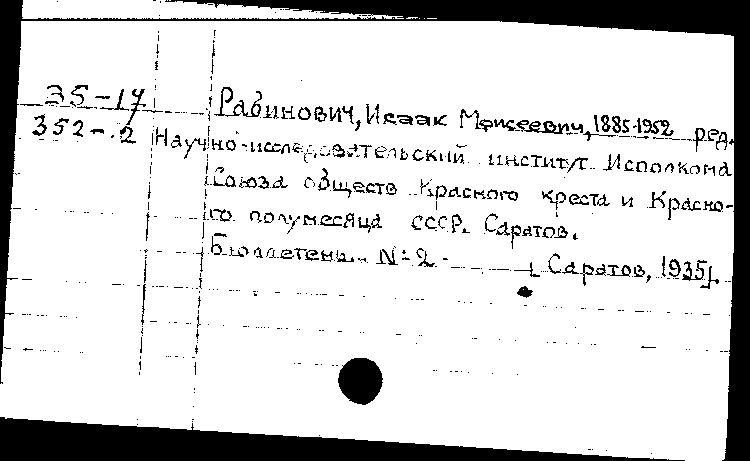 35-17 Рабинович, Исаак Моисеевич, 1885-1952 ред.
352-2 Научно-исследовательский институт Исполкома
Союза обществ Красного креста и Красно-
го полумесяца СССР. Саратов.
Бюллетень № 2 [Саратов, 1935].